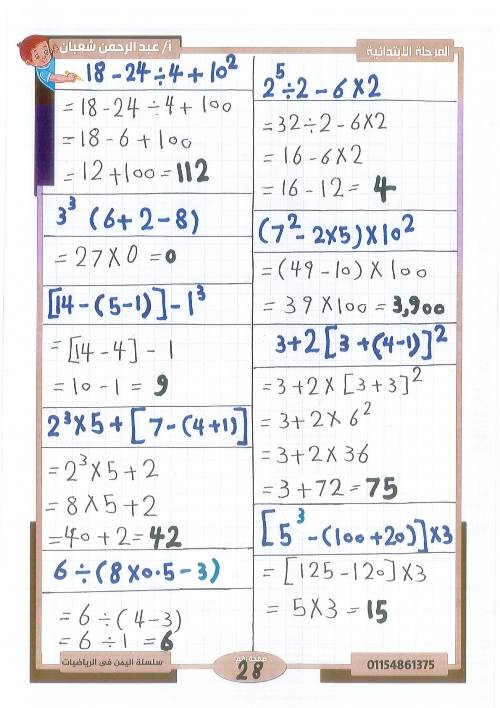 أ/ عبد الرحمن شعبان
المرحلة الابتدائية
18 - 24 ÷ 4 + 10²
= 18 - 24 ÷ 4 + 100
= 18 - 6 + 100
= 12 + 100 = 112
3³ (6 + 2 - 8)
= 27 × 0 = 0
[14 - (5 - 1)] - 1³
= [14 - 4] - 1
= 10 - 1 = 9
2³ × 5 + [7 - (4 + 1)]
= 2³ × 5 + 2
= 8 × 5 + 2
= 40 + 2 = 42
6 ÷ (8 × 0.5 - 3)
= 6 ÷ (4 - 3)
= 6 ÷ 1 = 6
2⁵ ÷ 2 - 6 × 2
= 32 ÷ 2 - 6 × 2
= 16 - 6 × 2
= 16 - 12 = 4
(7² - 2 × 5) × 10²
= (49 - 10) × 100
= 39 × 100 = 3,900
3 + 2 [3 + (4 - 1)]²
= 3 + 2 × [3 + 3]²
= 3 + 2 × 6²
= 3 + 2 × 36
= 3 + 72 = 75
[5³ - (100 + 20)] × 3
= [125 - 120] × 3
= 5 × 3 = 15
سلسلة اليمن فى الرياضيات
صفحة رقم
28
01154861375